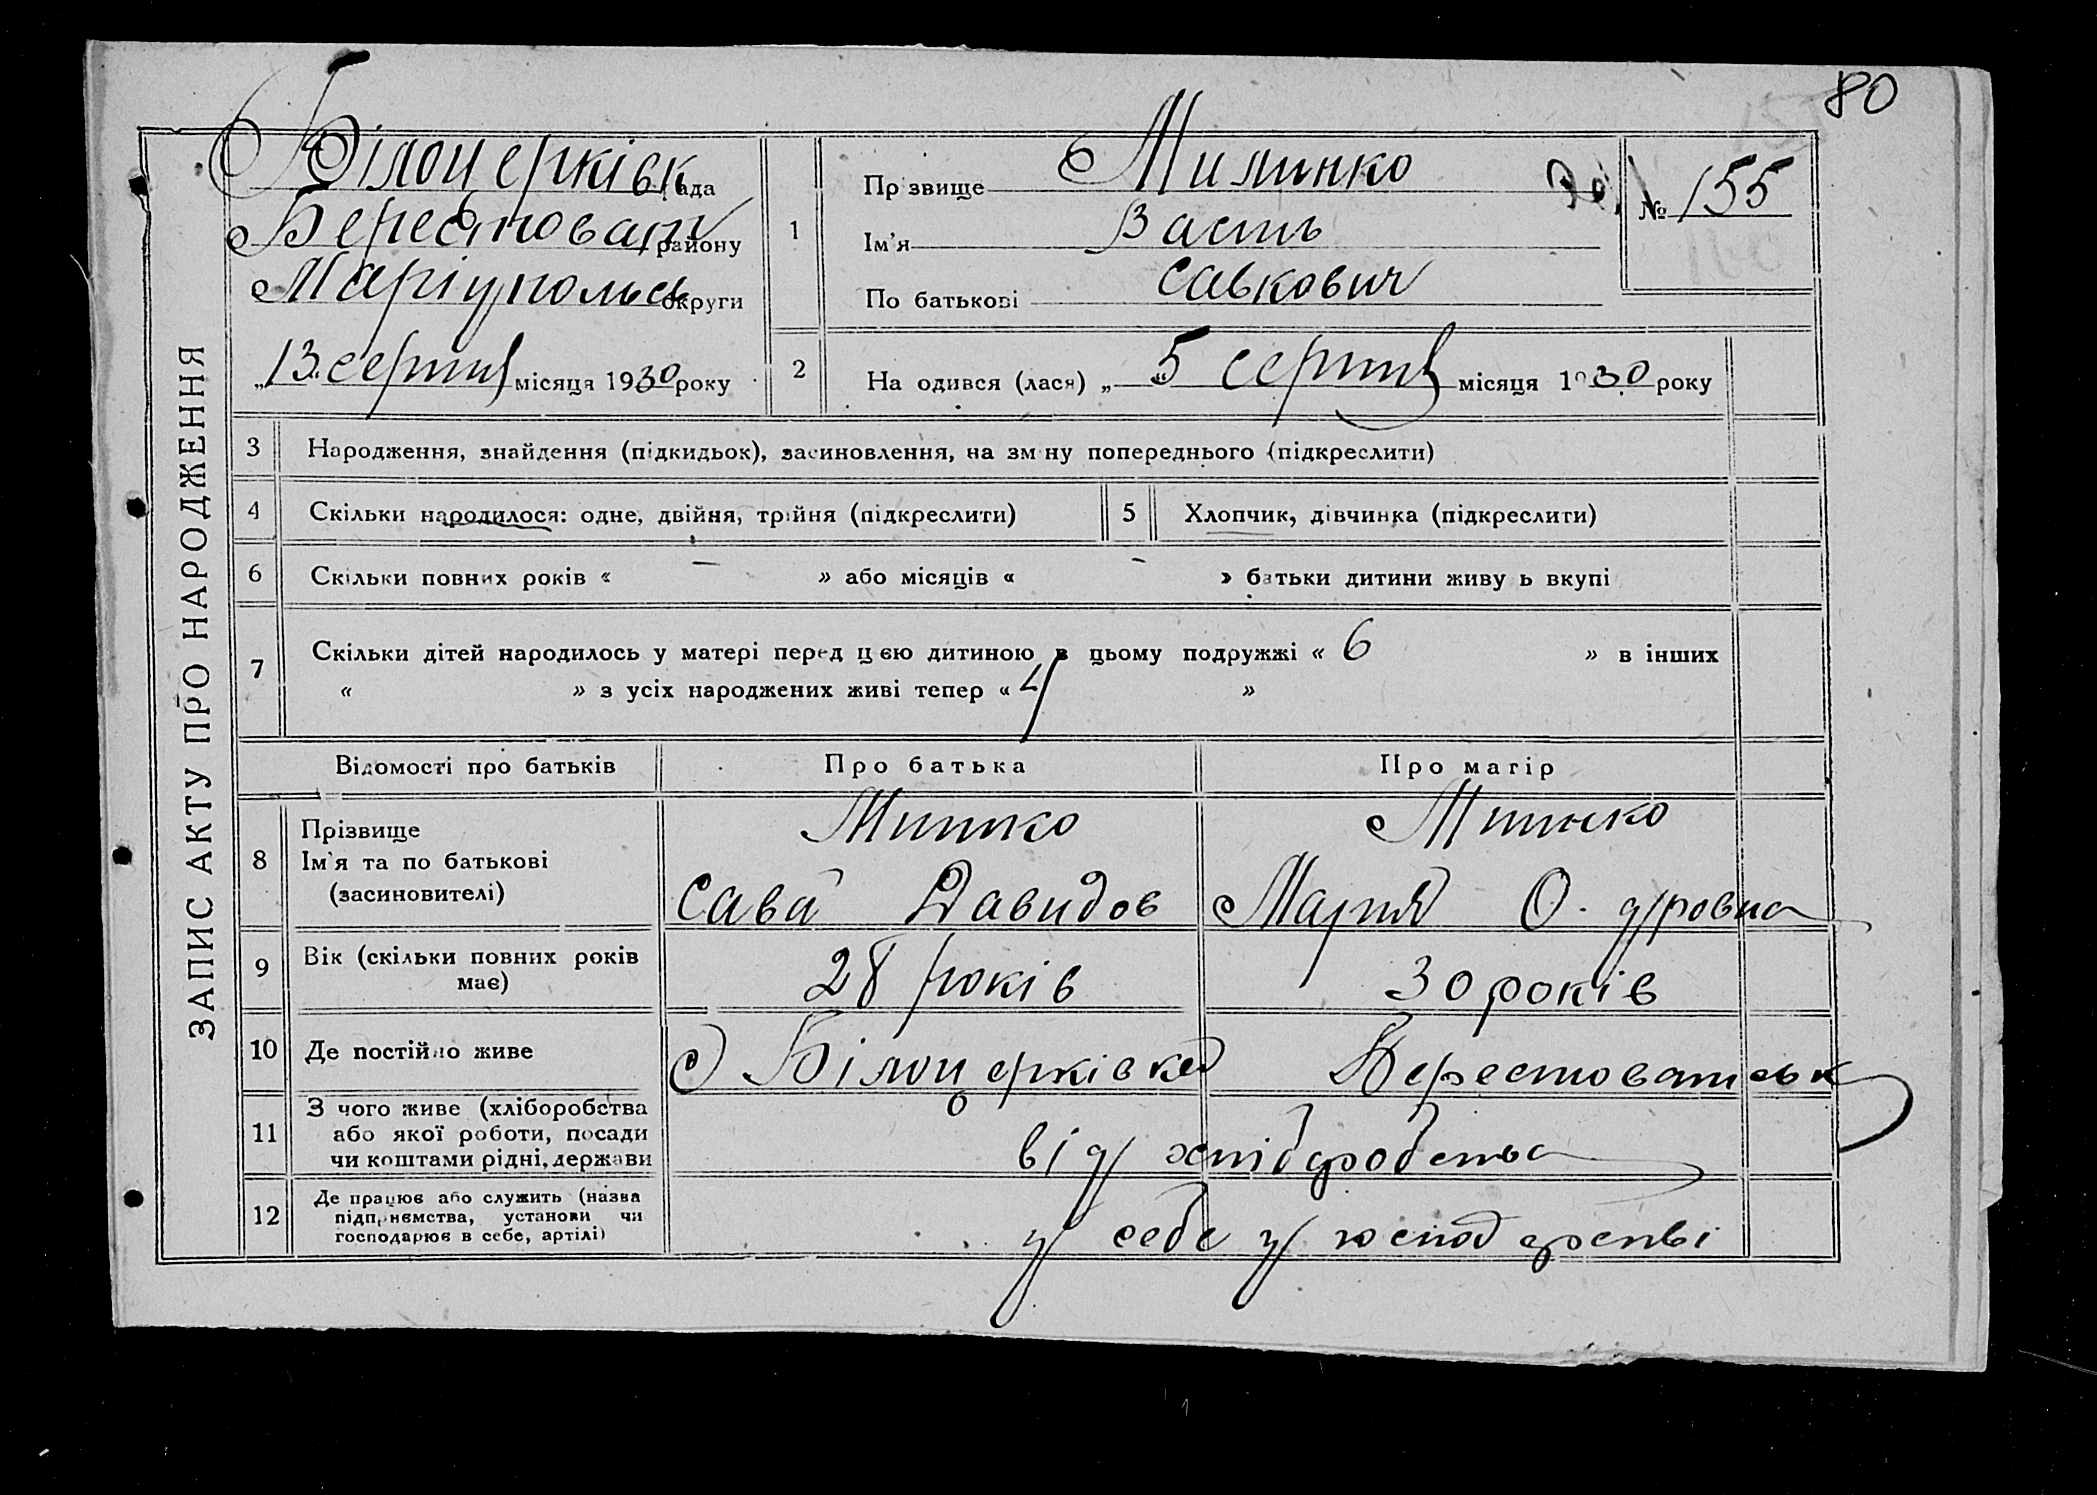 80
Білоцерківк рада
Берестован району
Маріупольськ округи
„13" серпня місяця 1930 року
1
Прізвище Милинко
Ім'я Василь
По батькові Савкович
№ 155
2
На одився (лася) „5" серпня місяця 1930 року
ЗАПИС АКТУ ПРО НАРОДЖЕННЯ
3 Народження, знайдення (підкидьок), засиновлення, на зміну попереднього (підкреслити)
4 Скільки народилося: одне, двійня, трійня (підкреслити)
5 Хлопчик, дівчинка (підкреслити)
6 Скільки повних років « — » або місяців « — » батьки дитини живу ь вкупі
7 Скільки дітей народилось у матері перед цею дитиною в цьому подружжі « 6 » в інших
« » з усіх народжених живі тепер « 4 »
Відомості про батьків
Про батька
Про матір
8 Прізвище
Ім'я та по батькові
(засиновителі)
Милинко
Сава Давидов
Милинко
Мария
9 Вік (скільки повних років
має)
28 років
30 років
10 Де постійно живе
Білоцерківка Берестоватськ
11 З чого живе (хліборобства
або якої роботи, посади
чи коштами рідні, держави
від хліборобства
12 Де працює або служить (назва
підприємства, установи чи
господарює в себе, артілі)
у себе у господрстві